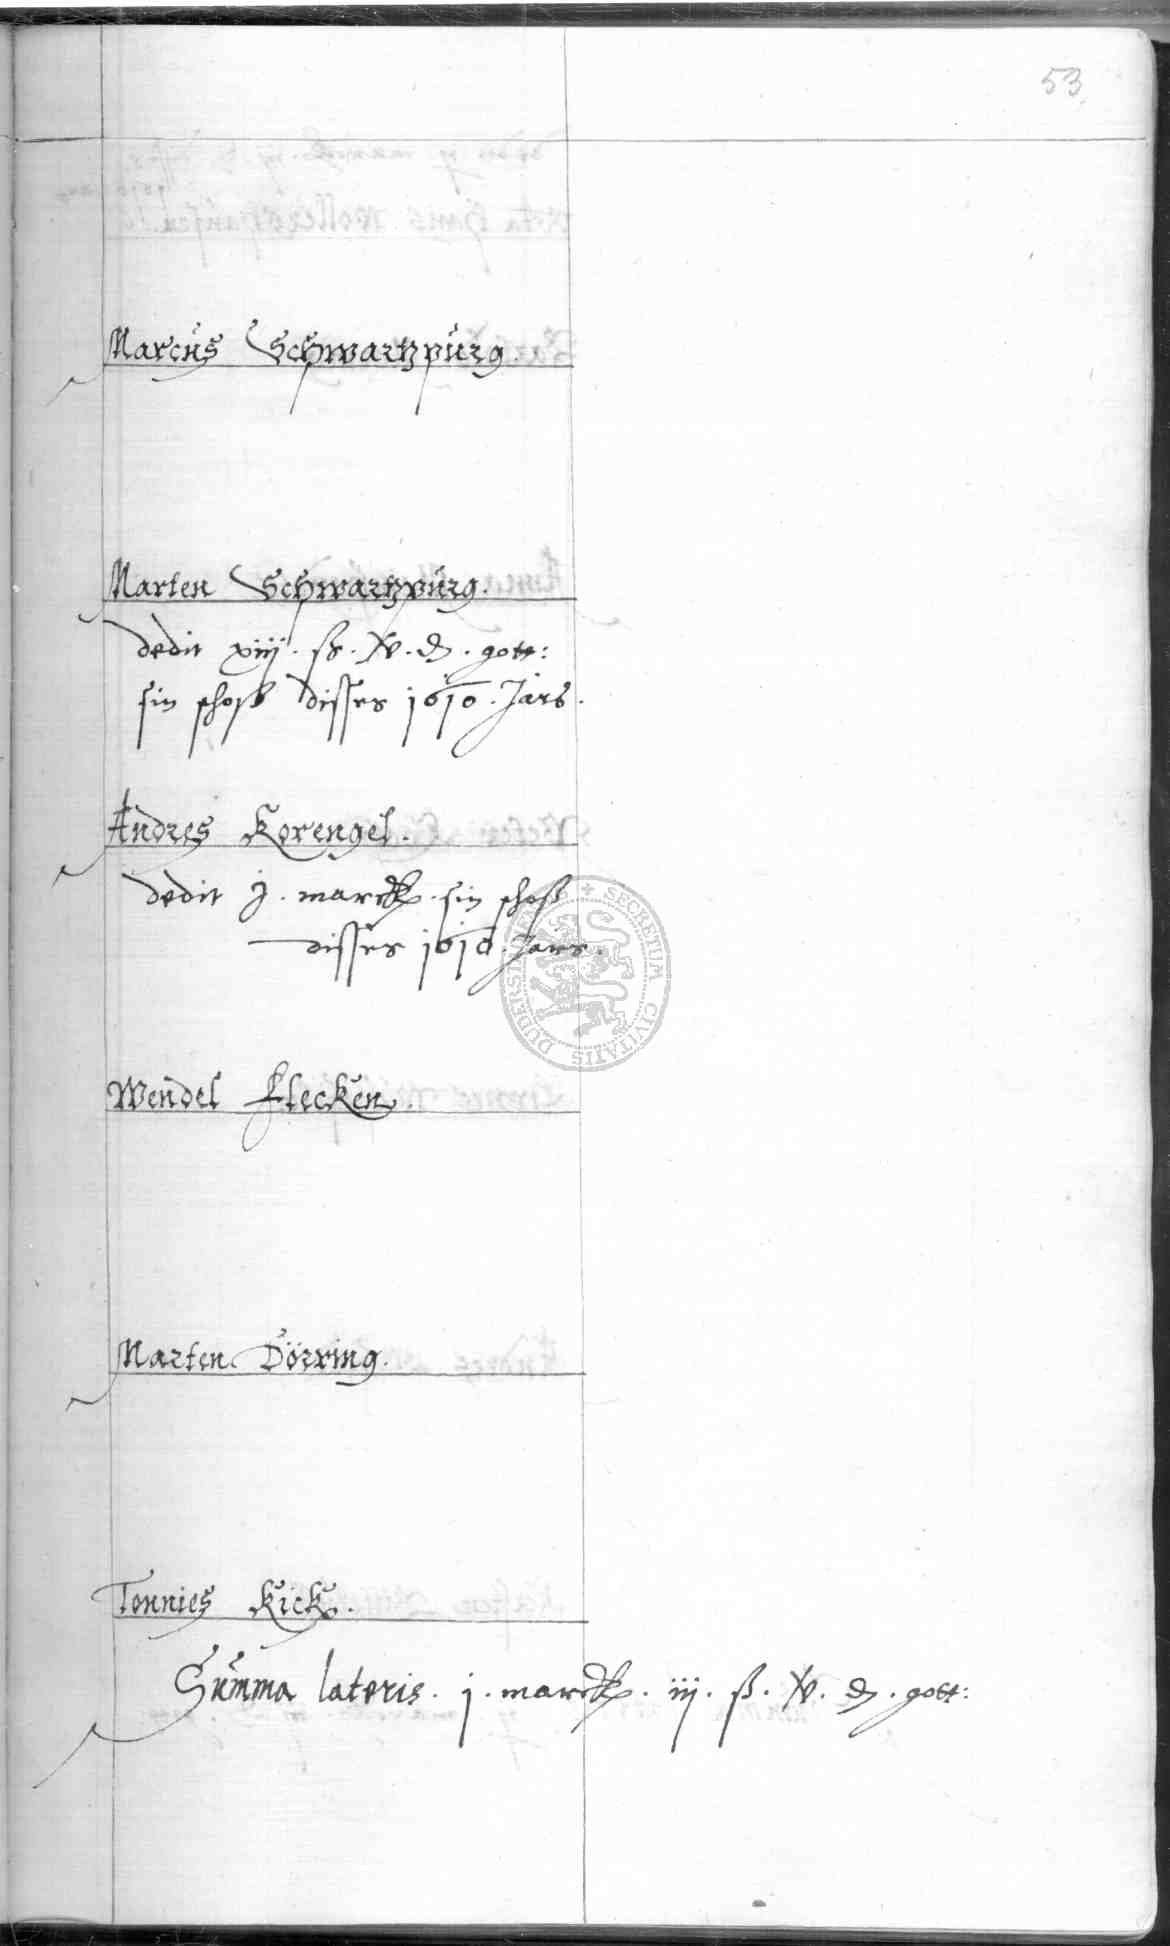 53
Marcus Schwartzpurg.
Marten Schwartzpurg.
dedit xiiij. ß. . d. gott:
sin schoß disses 1610. Jars.
Andres Korengel.
dedit j. marck. sin schoß
disses 1610. Jars.
Wendel Flecken.
Marten Dörring.
Tonnies Kick.
Summa lateris. j. marck. iij. ß. . d. gott:
SECRETUM CIVITATIS DUDERSTADENSIS